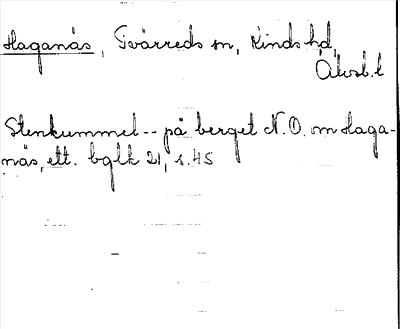 Haganäs, Tvärreds sn, Kinds hd,
Älvsb. l
Stenkummel -- på berget N.O. om Haga-
näs, ett. bglk 21, s. 45